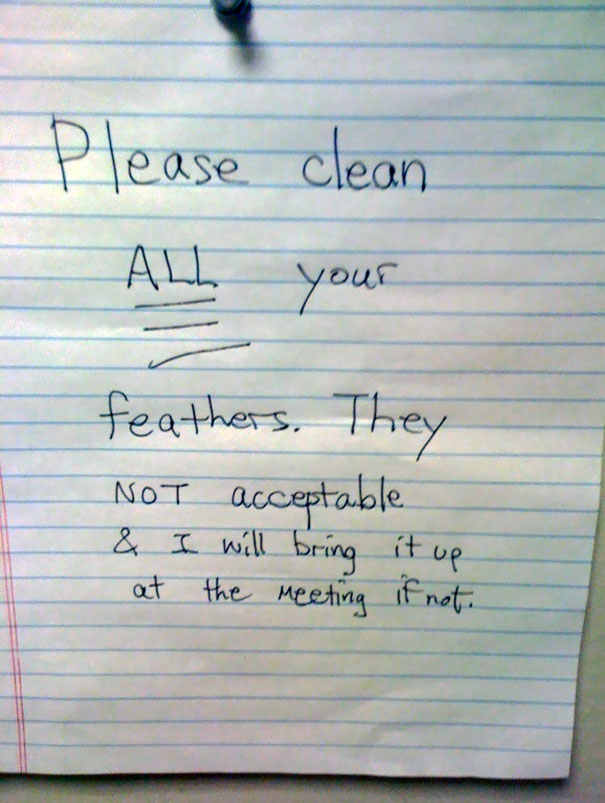 Please clean
ALL your
feathers. They
NOT acceptable
& I will bring it up
at the Meeting if not.